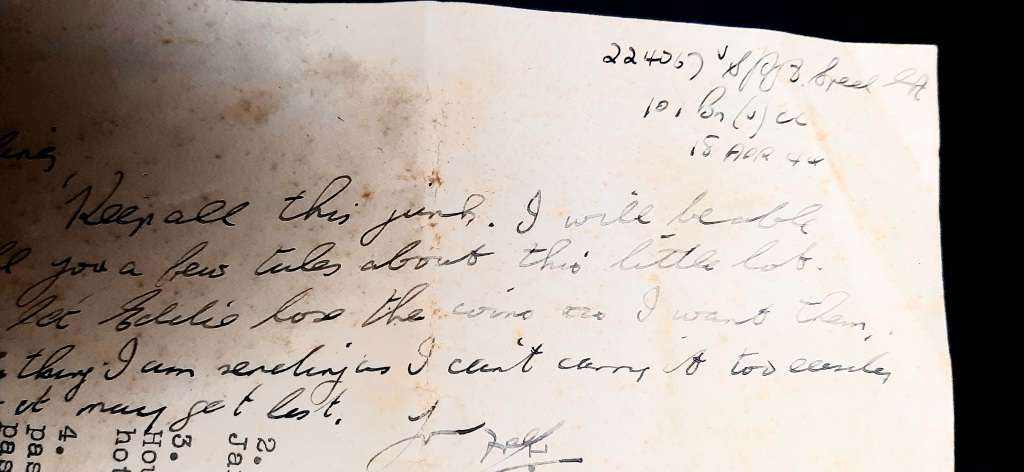 224067 V S/Sgt
101 Bn (V)
18 APR 44
ling
Keep all this junk. I will be able
ll you a few tales about this little lot.
let Eddie lose the coins as I want them.
thing I am sending as I can't carry it too easily
it may get lost.
2.
Ja
3.
Hou
hot
4.
pas
pas